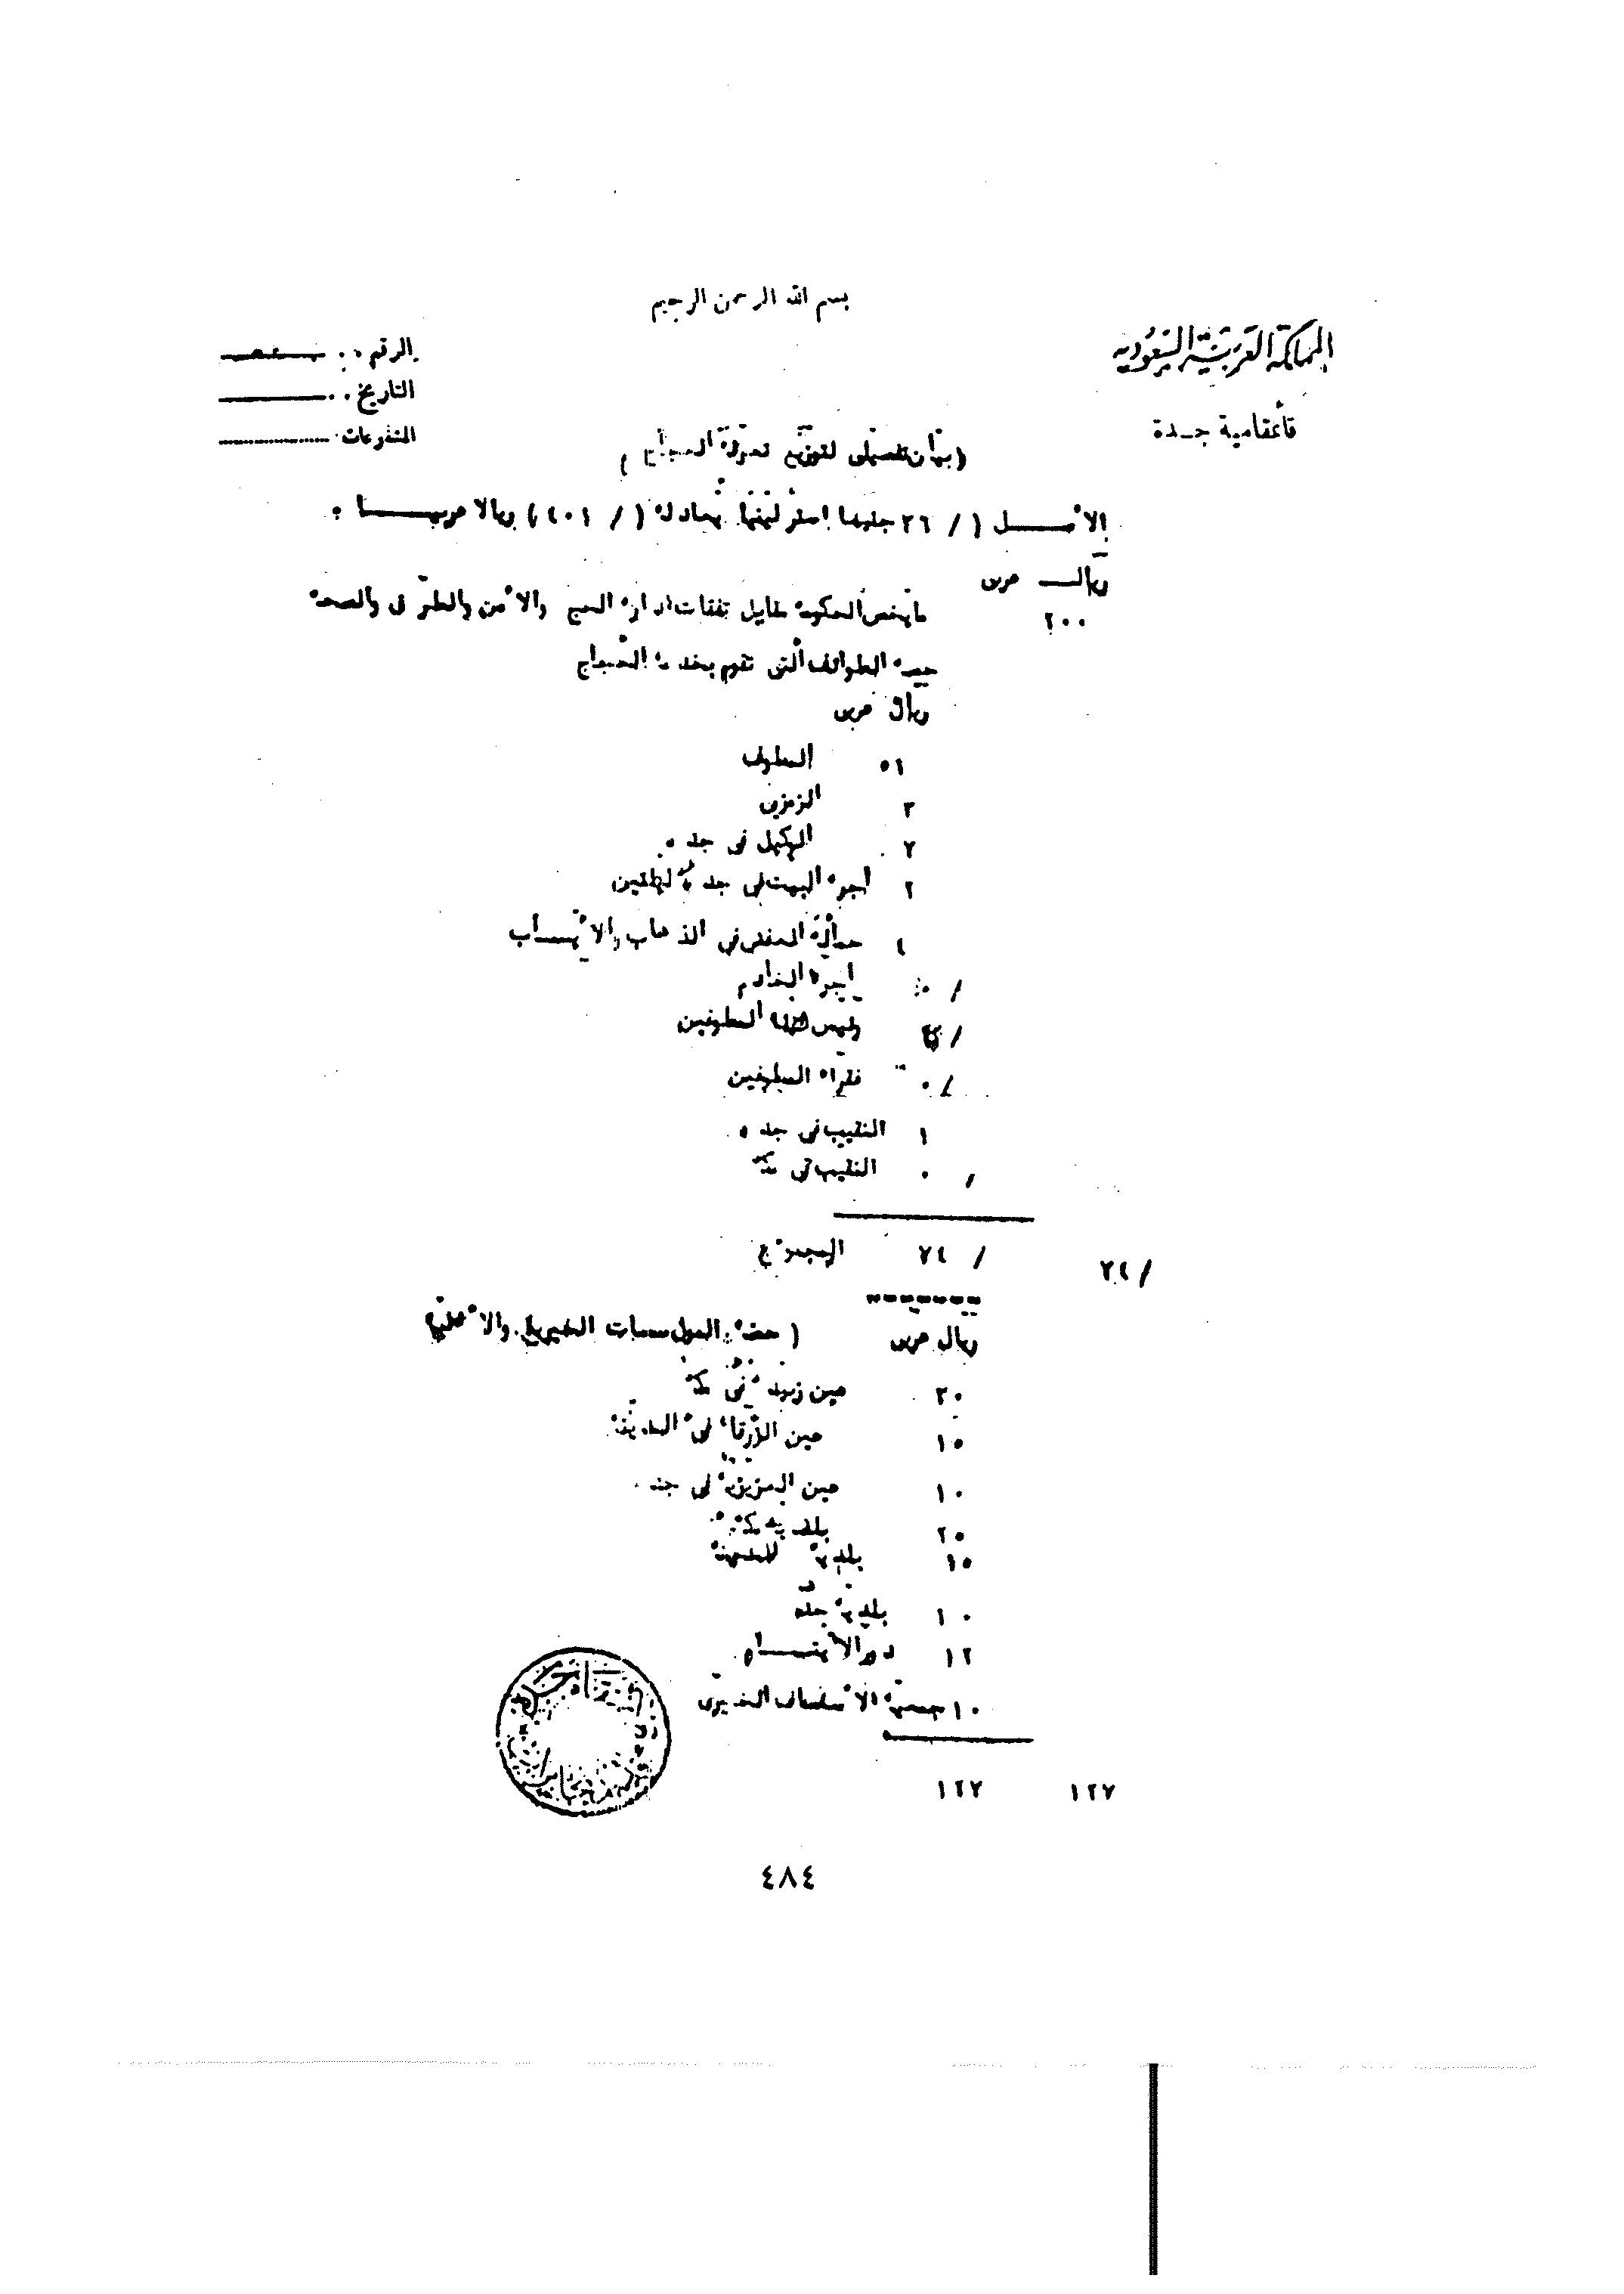 بسم الله الرحمن الرحيم
المملكة العربية السعودية
قائمقامية جـدة
الرقم
التاريخ
المشفوعات
( بيان تفصيلي لتوزيع تعرفة الحجاج )
الأصـــل ( / ٢٦ جنيها استرلينيا يعادله ( / ٤٠١ ) ريالا عربيـــا :
ريالـــ عربى
٢٠٠ ما يخص الحكومة مقابل نفقات ادارة الحج والأمن والطرق والصحة
حصة الطوائف التى تقوم بخدمة الحجاج
ريال عربى
٥١ المطوف
٣ الزمزمى
٧ الوكيل فى جده
٢ أجرة البيت فى جده
٤ حمالة العفش فى الذهاب والايـــاب
/ ٠ أجرة الخادم
رئيس المطوفين
/ ٠ فقراء المطوفين
١ النقيب فى جده
/ ٠ النقيب فى مكة
/ ٧٤ المجموع
/ ٧٤
ريال عربى ( حصة المؤسسات الخيرية والأهلية
٣٠ عين زبيدة فى مكة
١٥ عين الزرقاء فى المدينة
١٠ عين العزيزية فى جده
٢٥ بلدية مكة
١٥ بلدية المدينة
١٠ بلدية جده
١٢ دور الأيتـــام
١٠ جمعية الاسعاف الخيرى
١٢٧ ١٢٧
٤٨٤